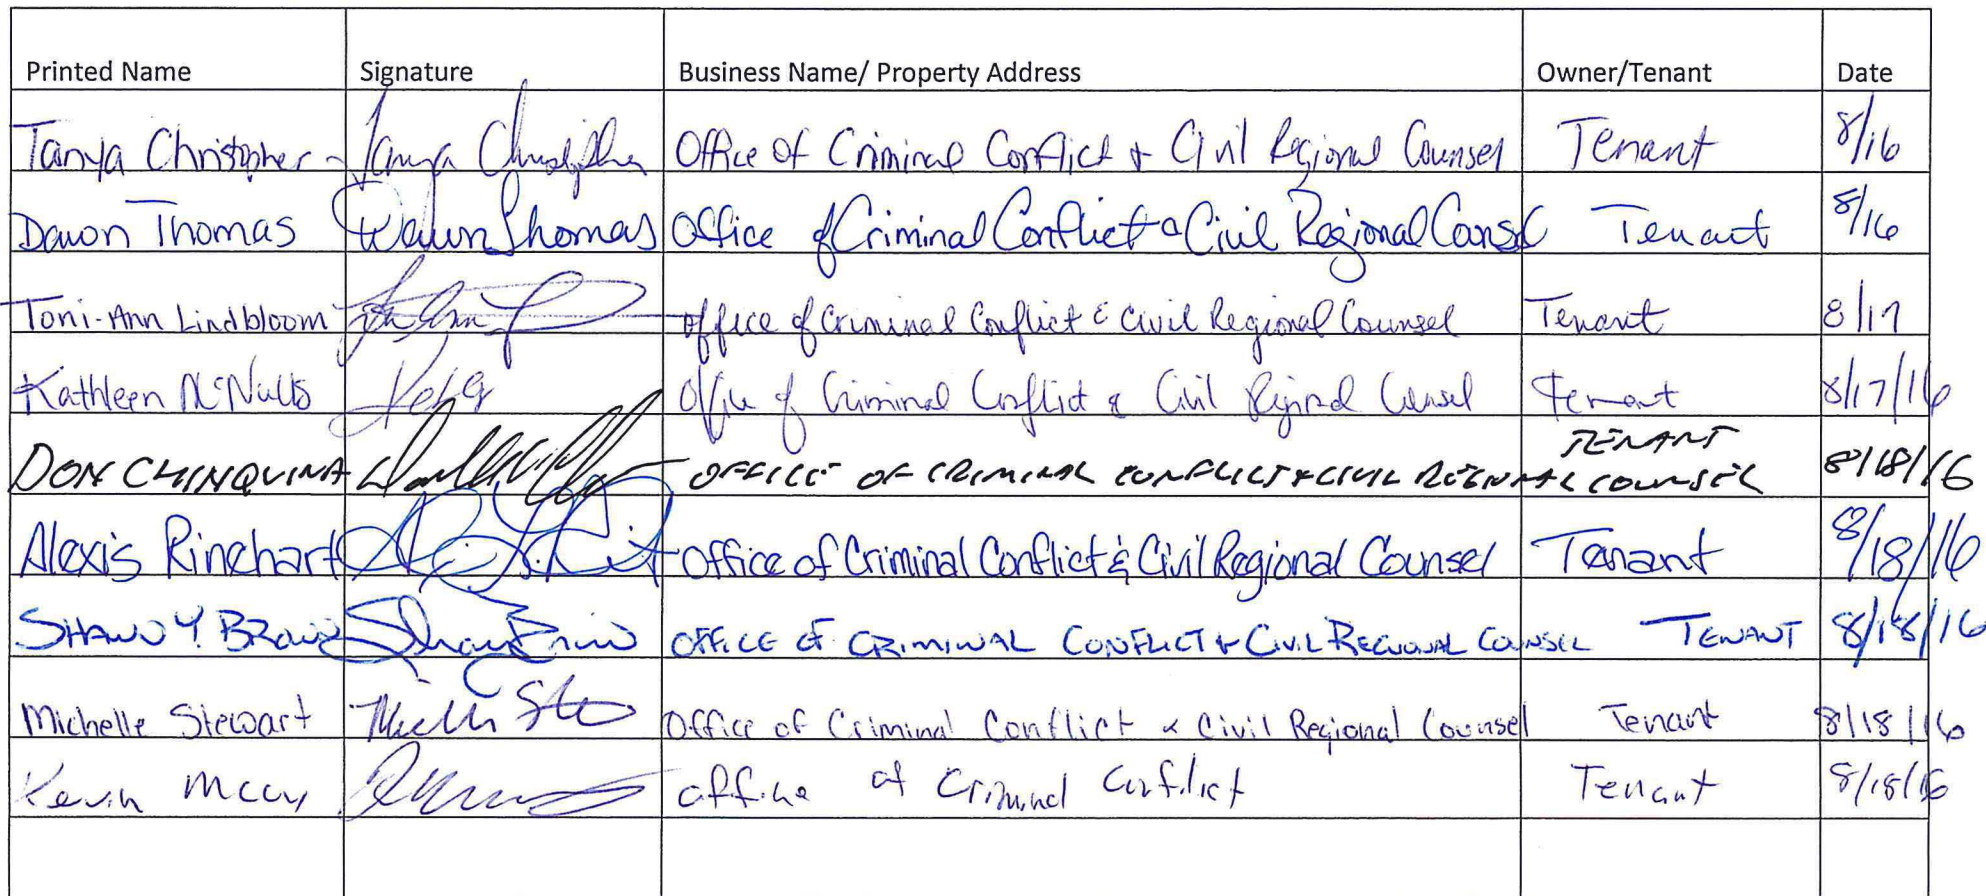 Printed Name Signature Business Name/ Property Address Owner/Tenant Date
Tanya Christopher - Tanya Christopher Office of Criminal Conflict + Civil Regional Counsel Tenant 8/16
Dawon Thomas Dawn Thomas Office of Criminal Conflict & Civil Regional Counsel Tenant 8/16
Toni-Ann Lindbloom Office of Criminal Conflict & Civil Regional Counsel Tenant 8/17
Kathleen McNulty Office of Criminal Conflict & Civil Regional Counsel Tenant 8/17/16
TENANT
DON CHINQUINA OFFICE OF CRIMINAL CONFLICT & CIVIL REGIONAL COUNSEL 8/18/16
Alexis Rinehart Office of Criminal Conflict & Civil Regional Counsel Tenant 8/18/16
SHAWN Y. BROWN OFFICE OF CRIMINAL CONFLICT & CIVIL REGIONAL COUNSEL TENANT 8/18/16
Michelle Stewart Office of Criminal Conflict & Civil Regional Counsel Tenant 8/18/16
Kevin McCoy office of Criminal Conflict Tenant 8/18/16